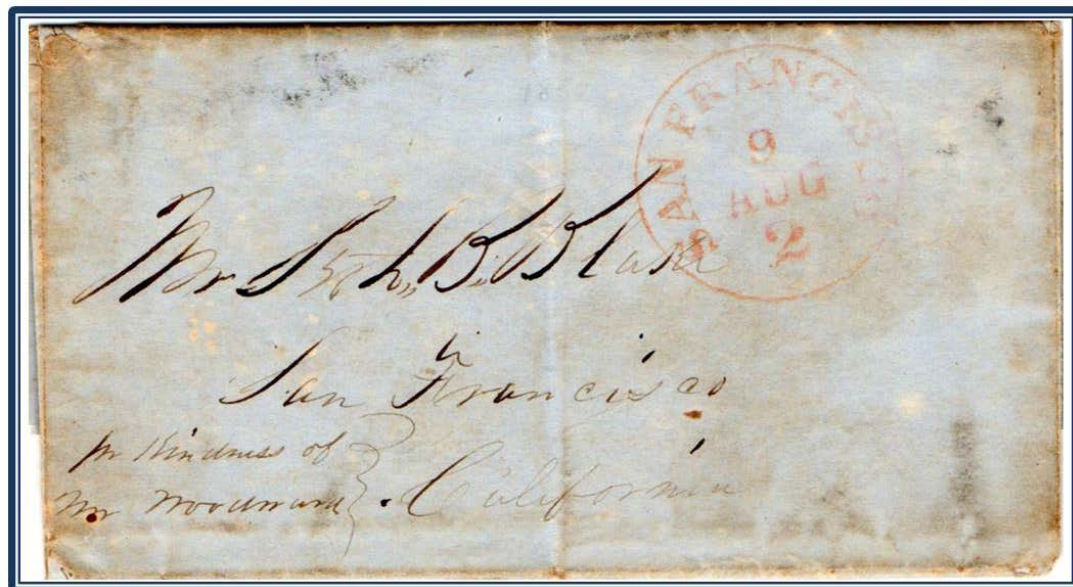 SAN FRANCISCO
9
AUG
2
Mr Seth, B. Blake
San Francisco
pr Kindness of
Mr Woodward
California